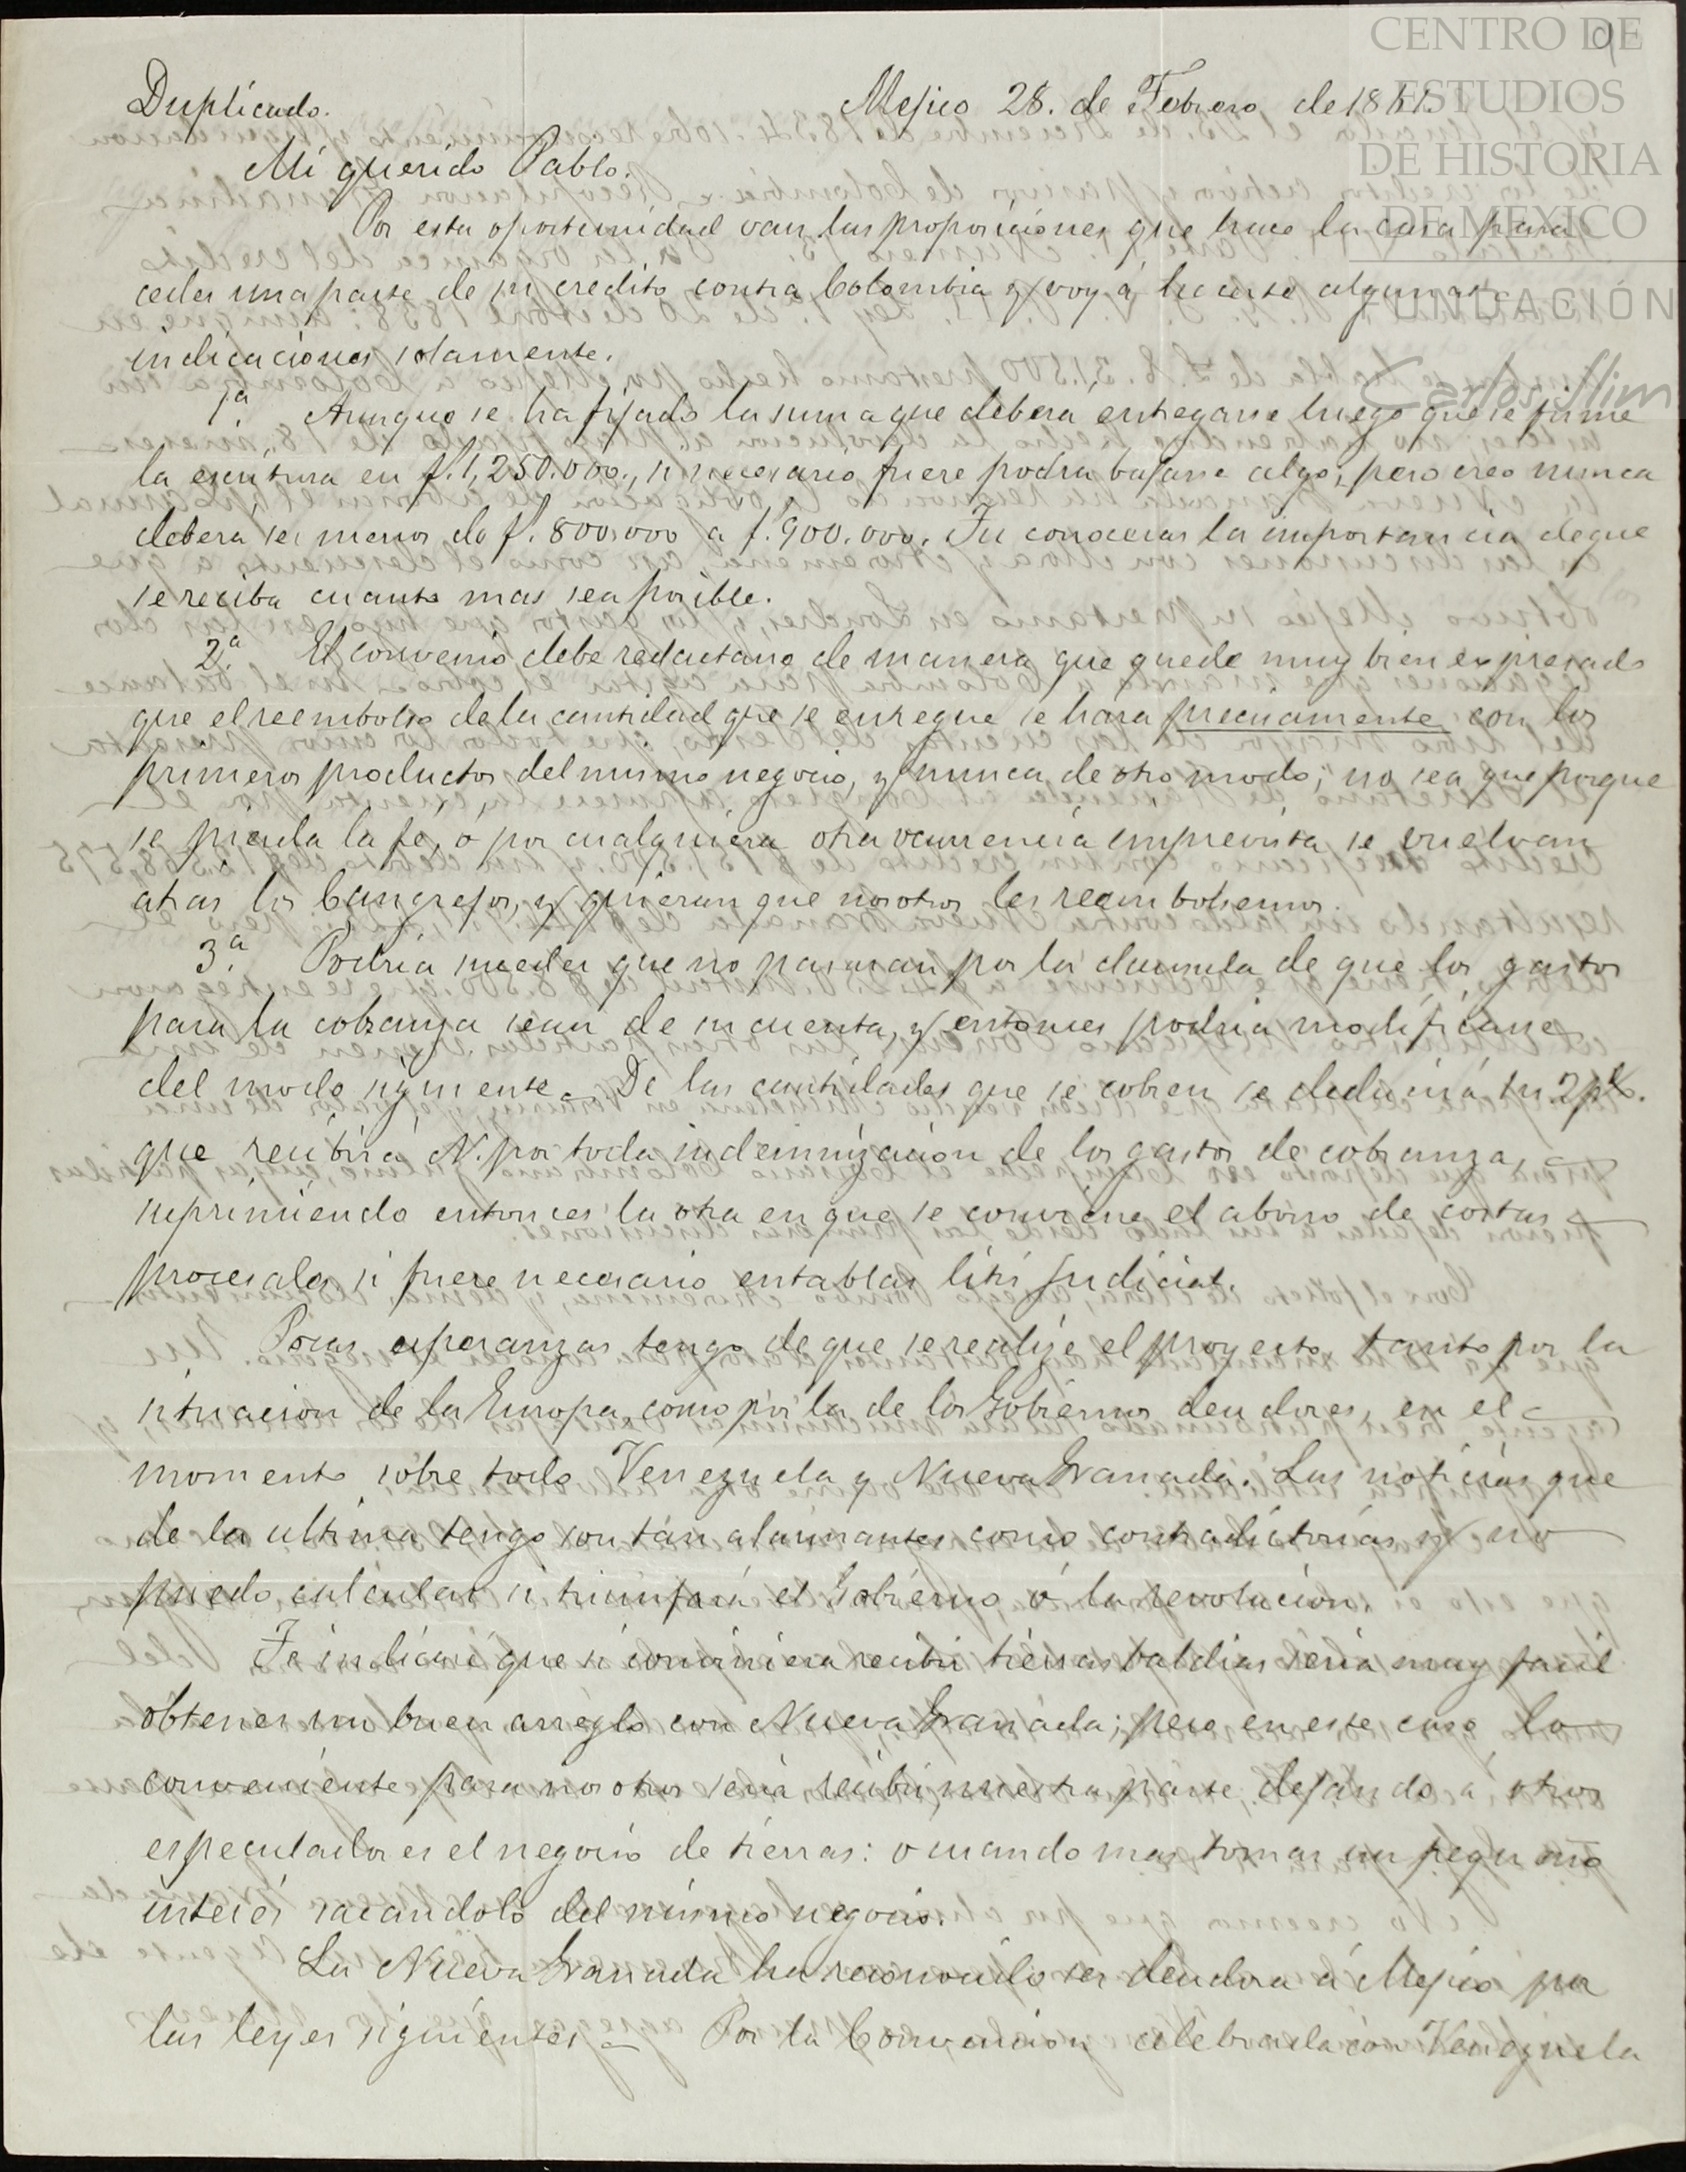 CENTRO DE
ESTUDIOS
DE HISTORIA
DE MEXICO
FUNDACIÓN
Carlos Slim
Duplicado. Mejico 28. de Febrero de 1861.
Mi querido Pablo.
Por esta oportunidad van las proposiciones que hace la casa para
ceder una parte de su credito contra Colombia y voy á hacerte algunas
indicaciones solamente.
1ª Aunque se ha fijado la suma que deberá entregarse luego que se firme
la escritura en f. 1,250.000., si necesario fuere podra bajarse algo; pero creo nunca
debera ser menos de f. 800.000 a f. 900.000. Tu conoceras la importancia de que
se reciba cuanto mas sea posible.
2.ª El convenio debe redactarse de manera que quede muy bien expresado
que el reembolso de la cantidad que se entregue se hara precisamente con los
primeros productos del mismo negocio, y nunca de otro modo; no sea que porque
se pierda la fe, ó por cualquiera otra ocurrencia imprevista se vuelvan
atras los Cangrejos, y quieran que nosotros les reembolsemos.
3.ª Podria suceder que no pasaran por la clausula de que los gastos
para la cobranza sean de su cuenta, y entonces podria modificarse
del modo siguiente – De las cantidades que se cobren se deducirá un 2 p%.
que recibirá N. por toda indemnización de los gastos de cobranza,
suprimiendo entonces la otra en que se conviene el abono de costas
procesales si fuere necesario entablar litis judicial.
Pocas esperanzas tengo de que se realize el proyecto, tanto por la
situacion de la Europa, como por la de los Gobiernos deudores, en el
momento sobre todo Venezuela y Nueva Granada. Las noticias que
de la ultima tengo son tan alarmantes como contradictorias y no
puedo calcular si triunfará el Gobierno ó la revolucion.
Te indicaré que si conviniera recibir tierras baldias seria muy facil
obtener un buen arreglo con Nueva Granada; pero en este caso lo
conveniente para nosotros seria recibir nuestra parte dejando á otros
especuladores el negocio de tierras: o cuando mas tomar un pequeño
interés sacandolo del mismo negocio.
La Nueva Granada ha reconocido ser deudora á Mejico por
las leyes siguientes – Por la Convencion celebrada con Venezuela